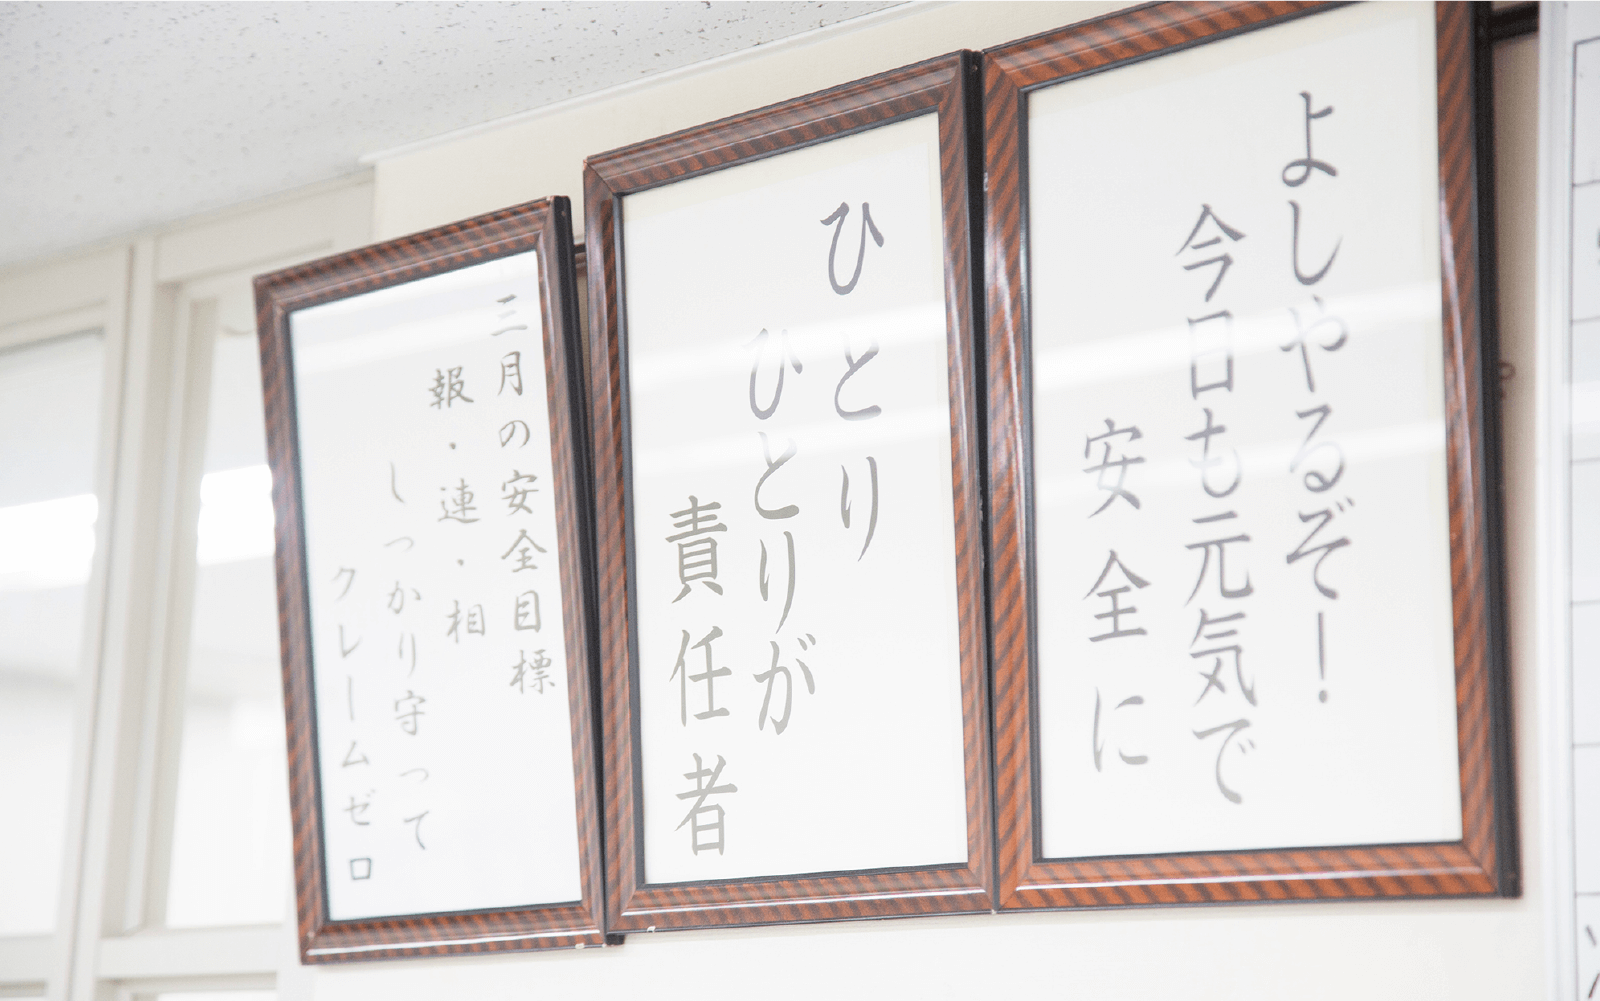 よしやるぞ！
今日も元気で
安全に
ひとり
ひとりが
責任者
三月の安全目標
報・連・相
しっかり守って
クレームゼロ